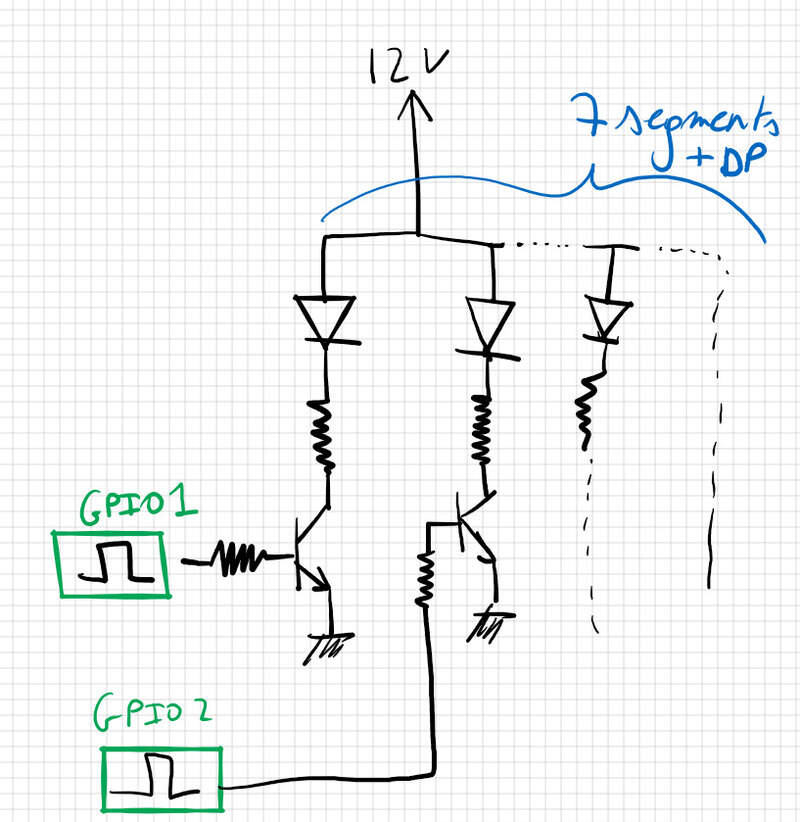 12V
7 segments
+ DP
GPIO1
GPIO2